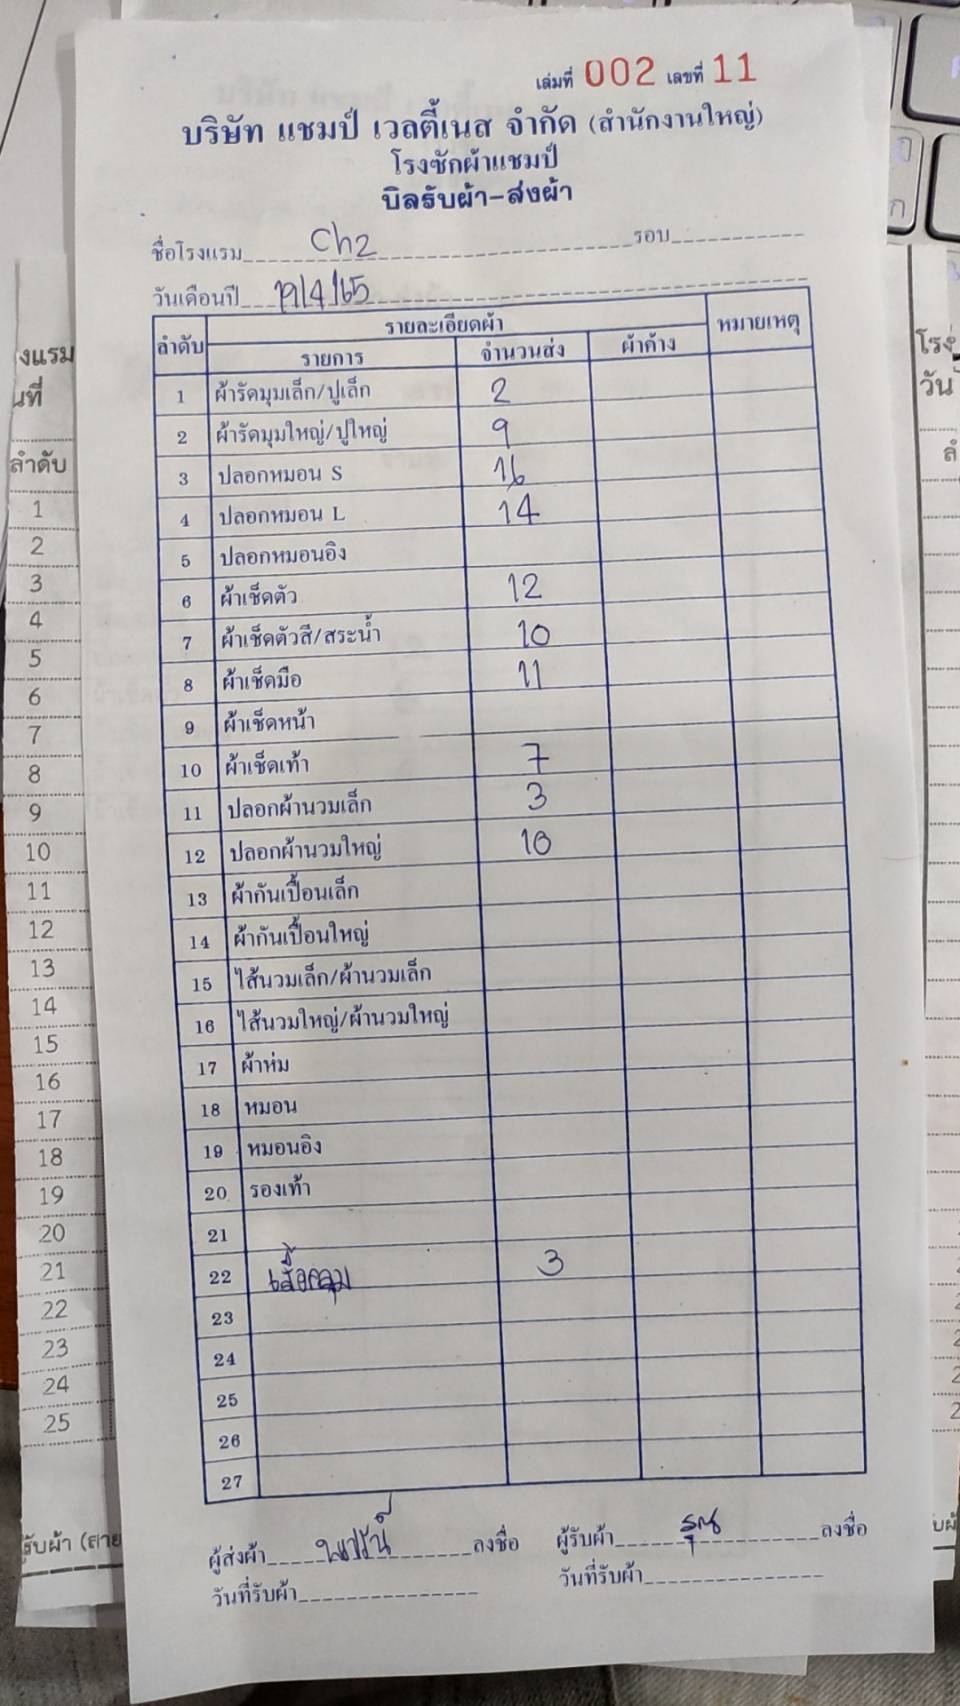 เล่มที่ 002 เลขที่ 11
บริษัท แชมป์ เวลตี้เนส จำกัด (สำนักงานใหญ่)
โรงซักผ้าแชมป์
บิลรับผ้า-ส่งผ้า
ชื่อโรงแรม Ch2 รอบ
วันเดือนปี 19/4/65
ลำดับ รายละเอียดผ้า หมายเหตุ
รายการ จำนวนส่ง ผ้าค้าง
1 ผ้ารัดมุมเล็ก/ปูเล็ก 2
2 ผ้ารัดมุมใหญ่/ปูใหญ่ 9
3 ปลอกหมอน S 16
4 ปลอกหมอน L 14
5 ปลอกหมอนอิง
6 ผ้าเช็ดตัว 12
7 ผ้าเช็ดตัวสี/สระน้ำ 10
8 ผ้าเช็ดมือ 11
9 ผ้าเช็ดหน้า
10 ผ้าเช็ดเท้า 7
11 ปลอกผ้านวมเล็ก 3
12 ปลอกผ้านวมใหญ่ 10
13 ผ้ากันเปื้อนเล็ก
14 ผ้ากันเปื้อนใหญ่
15 ไส้นวมเล็ก/ผ้านวมเล็ก
16 ไส้นวมใหญ่/ผ้านวมใหญ่
17 ผ้าห่ม
18 หมอน
19 หมอนอิง
20 รองเท้า
21
22 เสื้อคลุม 3
23
24
25
26
27
ผู้ส่งผ้า ลงชื่อ ผู้รับผ้า ลงชื่อ
วันที่รับผ้า วันที่รับผ้า
งแรม
นที่
ลำดับ
1
2
3
4
5
6
7
8
9
10
11
12
13
14
15
16
17
18
19
20
21
22
23
24
25
วัน